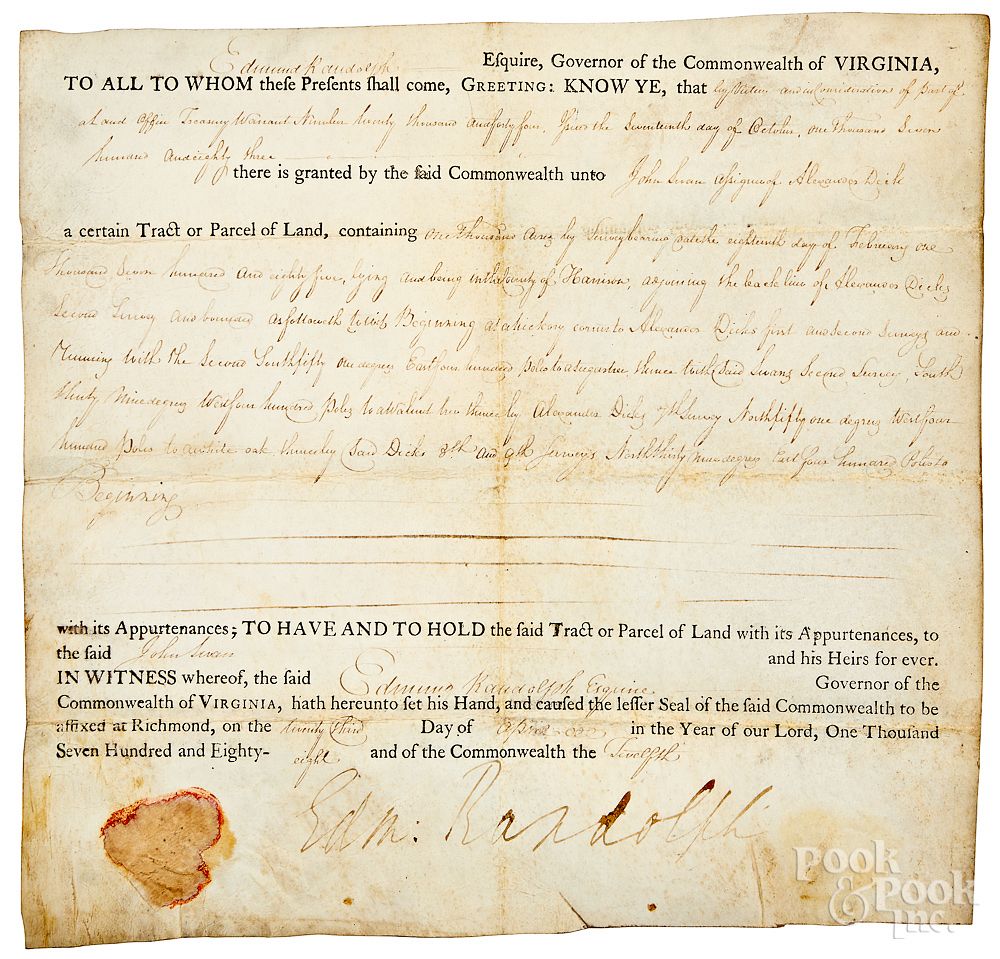 Edmund Randolph Esquire, Governor of the Commonwealth of VIRGINIA,
TO ALL TO WHOM theſe Preſents ſhall come, GREETING: KNOW YE, that by Virtue and in Consideration of Part of
a Land Office Treasury Warrant Number twenty thousand and forty four, Issued the Seventeenth day of October, one Thousand Seven
hundred and eighty three
there is granted by the ſaid Commonwealth unto John Swan assignee of Alexander Dick
a certain Tract or Parcel of Land, containing one thousand acres by Survey bearing date the eighteenth day of February one
Thousand Seven hundred and eighty five, lying and being in the County of Harrison, adjoining the back line of Alexander Dicks
Second Survey and bounded as followeth to wit Beginning at a hickory corner to Alexander Dicks first and second Surveys and
Running with the Second South fifty one degrees East four hundred poles to a Sugartree, thence with Said Swans Second Survey, South
thirty Nine degrees West four hundred poles to a Walnut tree thence by Alexander Dicks 7th Survey North fifty one degrees West four
hundred poles to a white oak thence by Said Dicks 8th and 9th Surveys North thirty nine degrees East four hundred Poles to
Beginning
with its Appurtenances; TO HAVE AND TO HOLD the ſaid Tract or Parcel of Land with its Appurtenances, to
the ſaid John Swan and his Heirs for ever.
IN WITNESS whereof, the ſaid Edmund Randolph Esquire Governor of the
Commonwealth of VIRGINIA, hath hereunto ſet his Hand, and cauſed the leſſer Seal of the ſaid Commonwealth to be
affixed at Richmond, on the twenty third Day of April in the Year of our Lord, One Thouſand
Seven Hundred and Eighty-eight and of the Commonwealth the Twelfth
Edm: Randolph
Pook
& Pook
Inc.